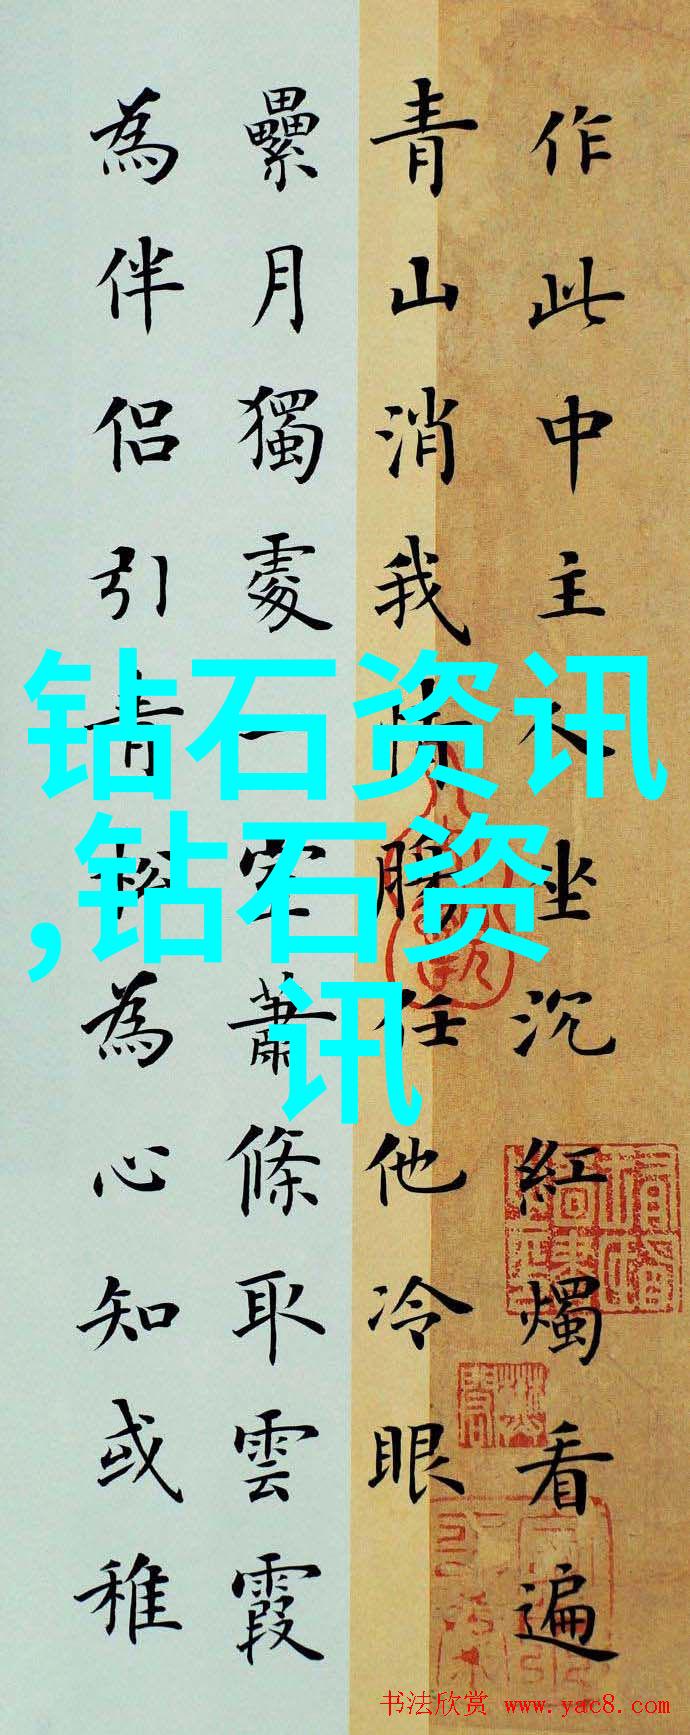 作此中主人坐沉紅燭看遍
青山消我情任他冷眼
纍月獨處一室蕭條取雲霞
為伴侶引青松為心知或稚
钻石资讯
,钻石资
讯
书法欣赏 www.yac8.com